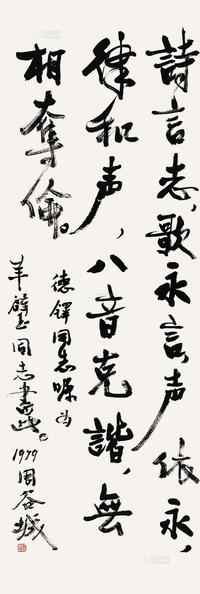 詩言志，歌永言，声依永，
律和声，八音克諧，無
相奪倫。
德鐸同志嘱为
羊璧玉同志書此。
1979 周谷城